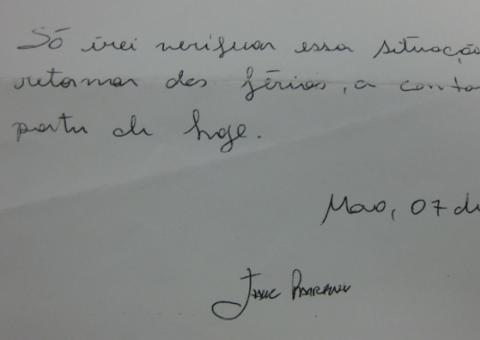 Só irei verificar essa situação
retornar das férias, a conta
partir de hoje.
Mao, 07 de